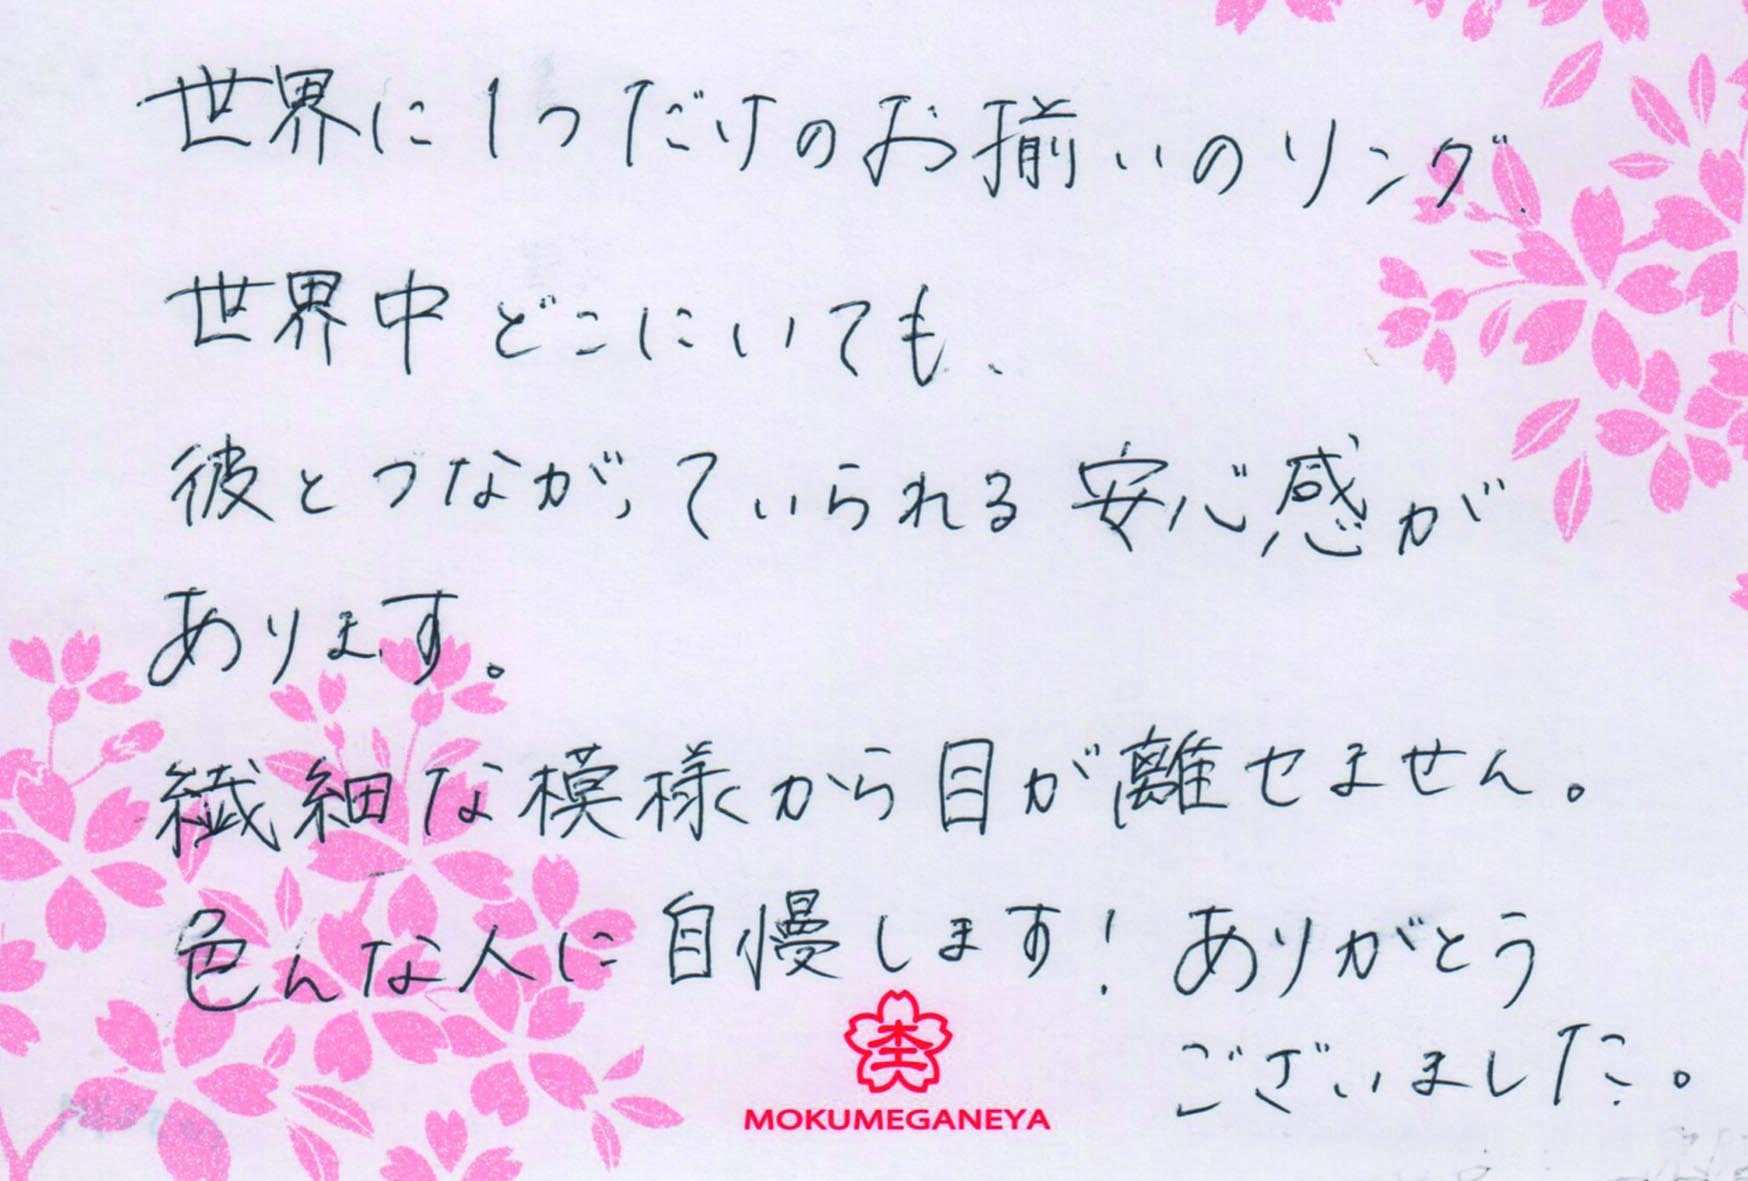 世界に1つだけのお揃いのリング.
世界中どこにいても、
彼とつながっていられる安心感が
あります。
繊細な模様から目が離せません。
色んな人に自慢します！ありがとう
ございました。
杢
MOKUMEGANEYA